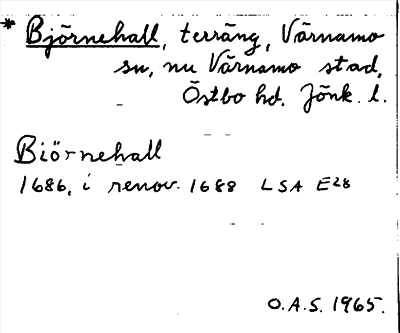 * Björnehall, terräng, Värnamo
sn, nu Värnamo stad,
Östbo hd. Jönk. l.
Biörnehall
1686, i renov. 1688 LSA E28
O.A.S. 1965.